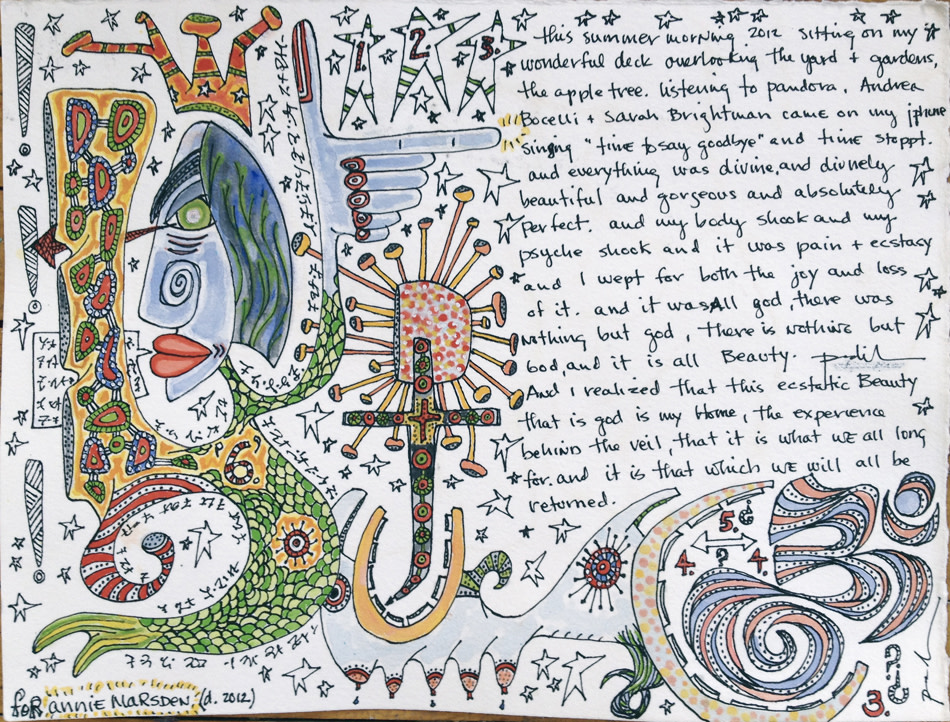 1. 2. 3.
this summer morning 2012 sitting on my
wonderful deck overlooking the yard + gardens,
the apple tree. listening to pandora, Andrea
Bocelli + Sarah Brightman came on my iphone
singing "time to say goodbye" and time stoppt.
and everything was divine, and divinely
beautiful and gorgeous and absolutely
perfect. and my body shook and my
psyche shook and it was pain + ecstasy
and I wept for both the joy and loss
of it. and it was All god, there was
nothing but god, there is nothing but
God, and it is all Beauty.
And I realized that this ecstatic Beauty
that is god is my Home, the experience
behind the veil, that it is what WE all long
for. and it is that which WE will all be
returned.
6.
5.
4. ? 4.
3.
for annie Marsden (d. 2012)